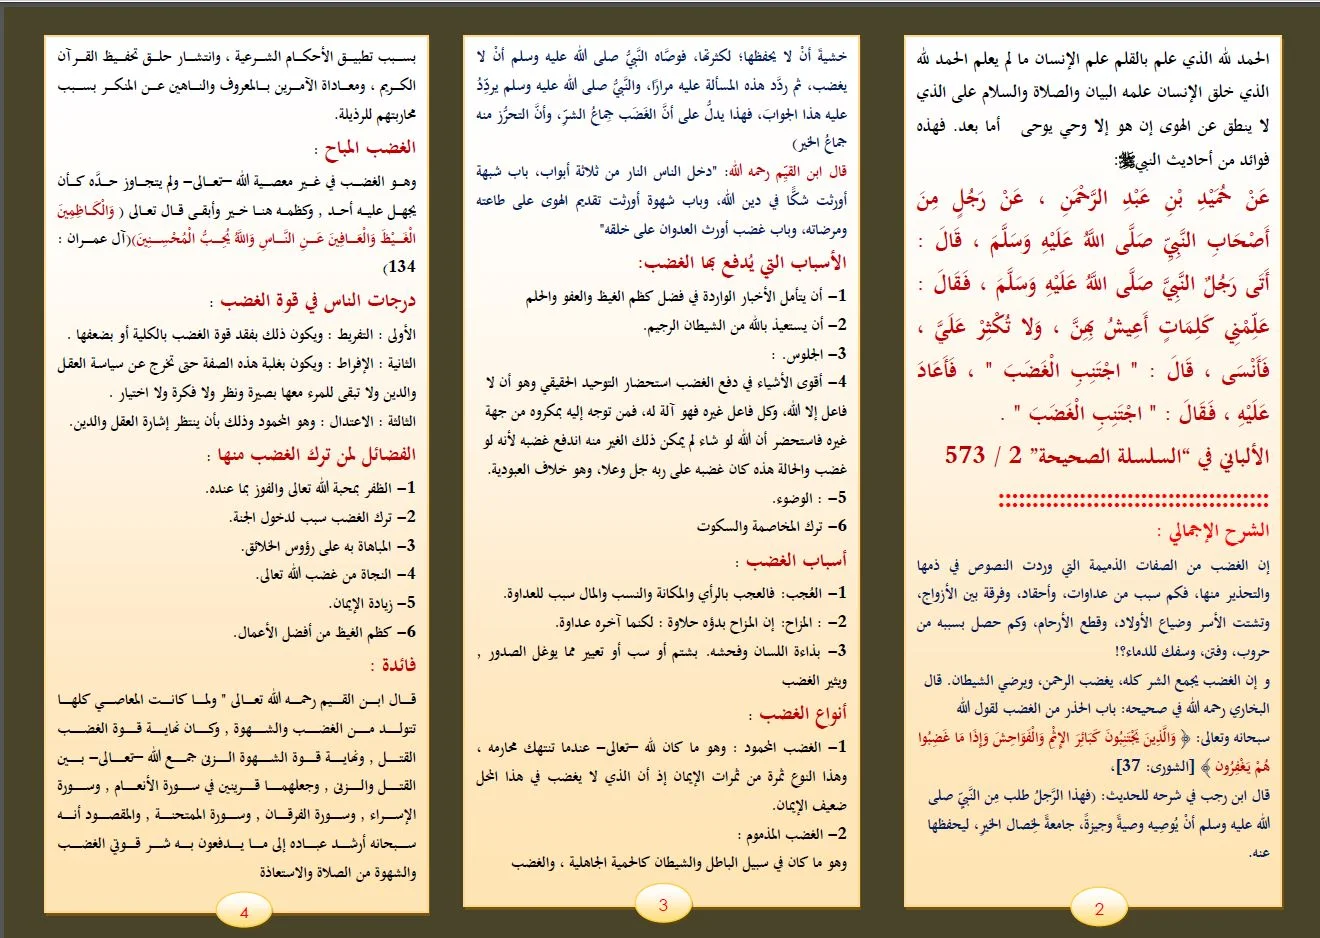 الحمد لله الذي علم بالقلم علم الإنسان ما لم يعلم الحمد لله
الذي خلق الإنسان علمه البيان والصلاة والسلام على الذي
لا ينطق عن الهوى إن هو إلا وحي يوحى أما بعد. فهذه
فوائد من أحاديث النبيﷺ:
عَنْ حُمَيْدِ بْنِ عَبْدِ الرَّحْمَنِ ، عَنْ رَجُلٍ مِنَ
أَصْحَابِ النَّبِيِّ صَلَّى اللَّهُ عَلَيْهِ وَسَلَّمَ ، قَالَ :
أَتَى رَجُلٌ النَّبِيَّ صَلَّى اللَّهُ عَلَيْهِ وَسَلَّمَ ، فَقَالَ :
عَلِّمْنِي كَلِمَاتٍ أَعِيشُ بِهِنَّ ، وَلا تُكْثِرْ عَلَيَّ ،
فَأَنْسَى ، قَالَ : " اجْتَنِبِ الْغَضَبَ " ، فَأَعَادَ
عَلَيْهِ ، فَقَالَ : " اجْتَنِبِ الْغَضَبَ " .
الألباني في “السلسلة الصحيحة” 2 / 573
::::::::::::::::::::::::::::::::::::::::
الشرح الإجمالي :
إن الغضب من الصفات الذميمة التي وردت النصوص في ذمها
والتحذير منها، فكم سبب من عداوات، وأحقاد، وفرقة بين الأزواج،
وتشتت الأسر وضياع الأولاد، وقطع الأرحام، وكم حصل بسببه من
حروب، وفتن، وسفك للدماء؟!
و إن الغضب يجمع الشر كله، يغضب الرحمن، ويرضي الشيطان. قال
البخاري رحمه الله في صحيحه: باب الحذر من الغضب لقول الله
سبحانه وتعالى: ﴿ وَالَّذِينَ يَجْتَنِبُونَ كَبَائِرَ الإِثْمِ وَالْفَوَاحِشَ وَإِذَا مَا غَضِبُوا
هُمْ يَغْفِرُونَ ﴾ [الشورى: 37]،
قال ابن رجب في شرحه للحديث: (فهذا الرَّجلُ طلب مِن النَّبيِّ صلى
الله عليه وسلم أنْ يُوصِيه وصيةً وجيزةً، جامعةً لِخصال الخيرِ، ليحفظها
عنه.
2
خشيةَ أنْ لا يحفظها؛ لكثرتها، فوصَّاه النَّبيُّ صلى الله عليه وسلم أنْ لا
يغضب، ثم ردَّد هذه المسألة عليه مرارًا، والنَّبيُّ صلى الله عليه وسلم يردِّدُ
عليه هذا الجوابَ، فهذا يدلُّ على أنَّ الغَضَب جِماعُ الشرِّ، وأنَّ التحرُّز منه
جماعُ الخير)
قال ابن القيّم رحمه الله: "دخل الناس النار من ثلاثة أبواب، باب شبهة
أورثت شكًّا في دين الله، وباب شهوة أورثت تقديم الهوى على طاعته
ومرضاته، وباب غضب أورث العدوان على خلقه"
الأسباب التي يُدفع بها الغضب:
1– أن يتأمل الأخبار الواردة في فضل كظم الغيظ والعفو والحلم
2– أن يستعيذ بالله من الشيطان الرجيم.
3– الجلوس. :
4– أقوى الأشياء في دفع الغضب استحضار التوحيد الحقيقي وهو أن لا
فاعل إلا الله، وكل فاعل غيره فهو آلة له، فمن توجه إليه بمكروه من جهة
غيره فاستحضر أن الله لو شاء لم يمكن ذلك الغير منه اندفع غضبه لأنه لو
غضب والحالة هذه كان غضبه على ربه جل وعلا، وهو خلاف العبودية.
5– : الوضوء.
6– ترك المخاصمة والسكوت
أسباب الغضب :
1– العُجب: فالعجب بالرأي والمكانة والنسب والمال سبب للعداوة.
2– : المزاح: إن المزاح بدؤه حلاوة : لكنما آخره عداوة.
3– بذاءة اللسان وفحشه. بشتم أو سب أو تعيير مما يوغل الصدور ,
ويثير الغضب
أنواع الغضب :
1– الغضب المحمود : وهو ما كان لله –تعالى– عندما تنتهك محارمه ،
وهذا النوع ثمرة من ثمرات الإيمان إذ أن الذي لا يغضب في هذا المحل
ضعيف الإيمان.
2– الغضب المذموم :
وهو ما كان في سبيل الباطل والشيطان كالحمية الجاهلية ، والغضب
3
بسبب تطبيق الأحكام الشرعية ، وانتشار حلق تحفيظ القرآن
الكريم ، ومعاداة الآمرين بالمعروف والناهين عن المنكر بسبب
محاربتهم للرذيلة.
الغضب المباح :
وهو الغضب في غير معصية الله –تعالى– ولم يتجاوز حدَّه كأن
يجهل عليه أحد , وكظمه هنا خير وأبقى قال تعالى ( وَالْكَاظِمِينَ
الْغَيْظَ وَالْعَافِينَ عَنِ النَّاسِ وَاللَّهُ يُحِبُّ الْمُحْسِنِينَ)(آل عمران :
134)
درجات الناس في قوة الغضب :
الأولى : التفريط : ويكون ذلك بفقد قوة الغضب بالكلية أو بضعفها .
الثانية : الإفراط : ويكون بغلبة هذه الصفة حتى تخرج عن سياسة العقل
والدين ولا تبقى للمرء معها بصيرة ونظر ولا فكرة ولا اختيار .
الثالثة : الاعتدال : وهو المحمود وذلك بأن ينتظر إشارة العقل والدين.
الفضائل لمن ترك الغضب منها :
1– الظفر بمحبة الله تعالى والفوز بما عنده.
2– ترك الغضب سبب لدخول الجنة.
3– المباهاة به على رؤوس الخلائق.
4– النجاة من غضب الله تعالى.
5– زيادة الإيمان.
6– كظم الغيظ من أفضل الأعمال.
فائدة :
قال ابن القيم رحمه الله تعالى " ولما كانت المعاصي كلها
تتولد من الغضب والشهوة , وكان نهاية قوة الغضب
القتل , ونهاية قوة الشهوة الزنى جمع الله –تعالى– بين
القتل والزنى , وجعلهما قرينين في سورة الأنعام , وسورة
الإسراء , وسورة الفرقان , وسورة الممتحنة , والمقصود أنه
سبحانه أرشد عباده إلى ما يدفعون به شر قوتي الغضب
والشهوة من الصلاة والاستعاذة
4